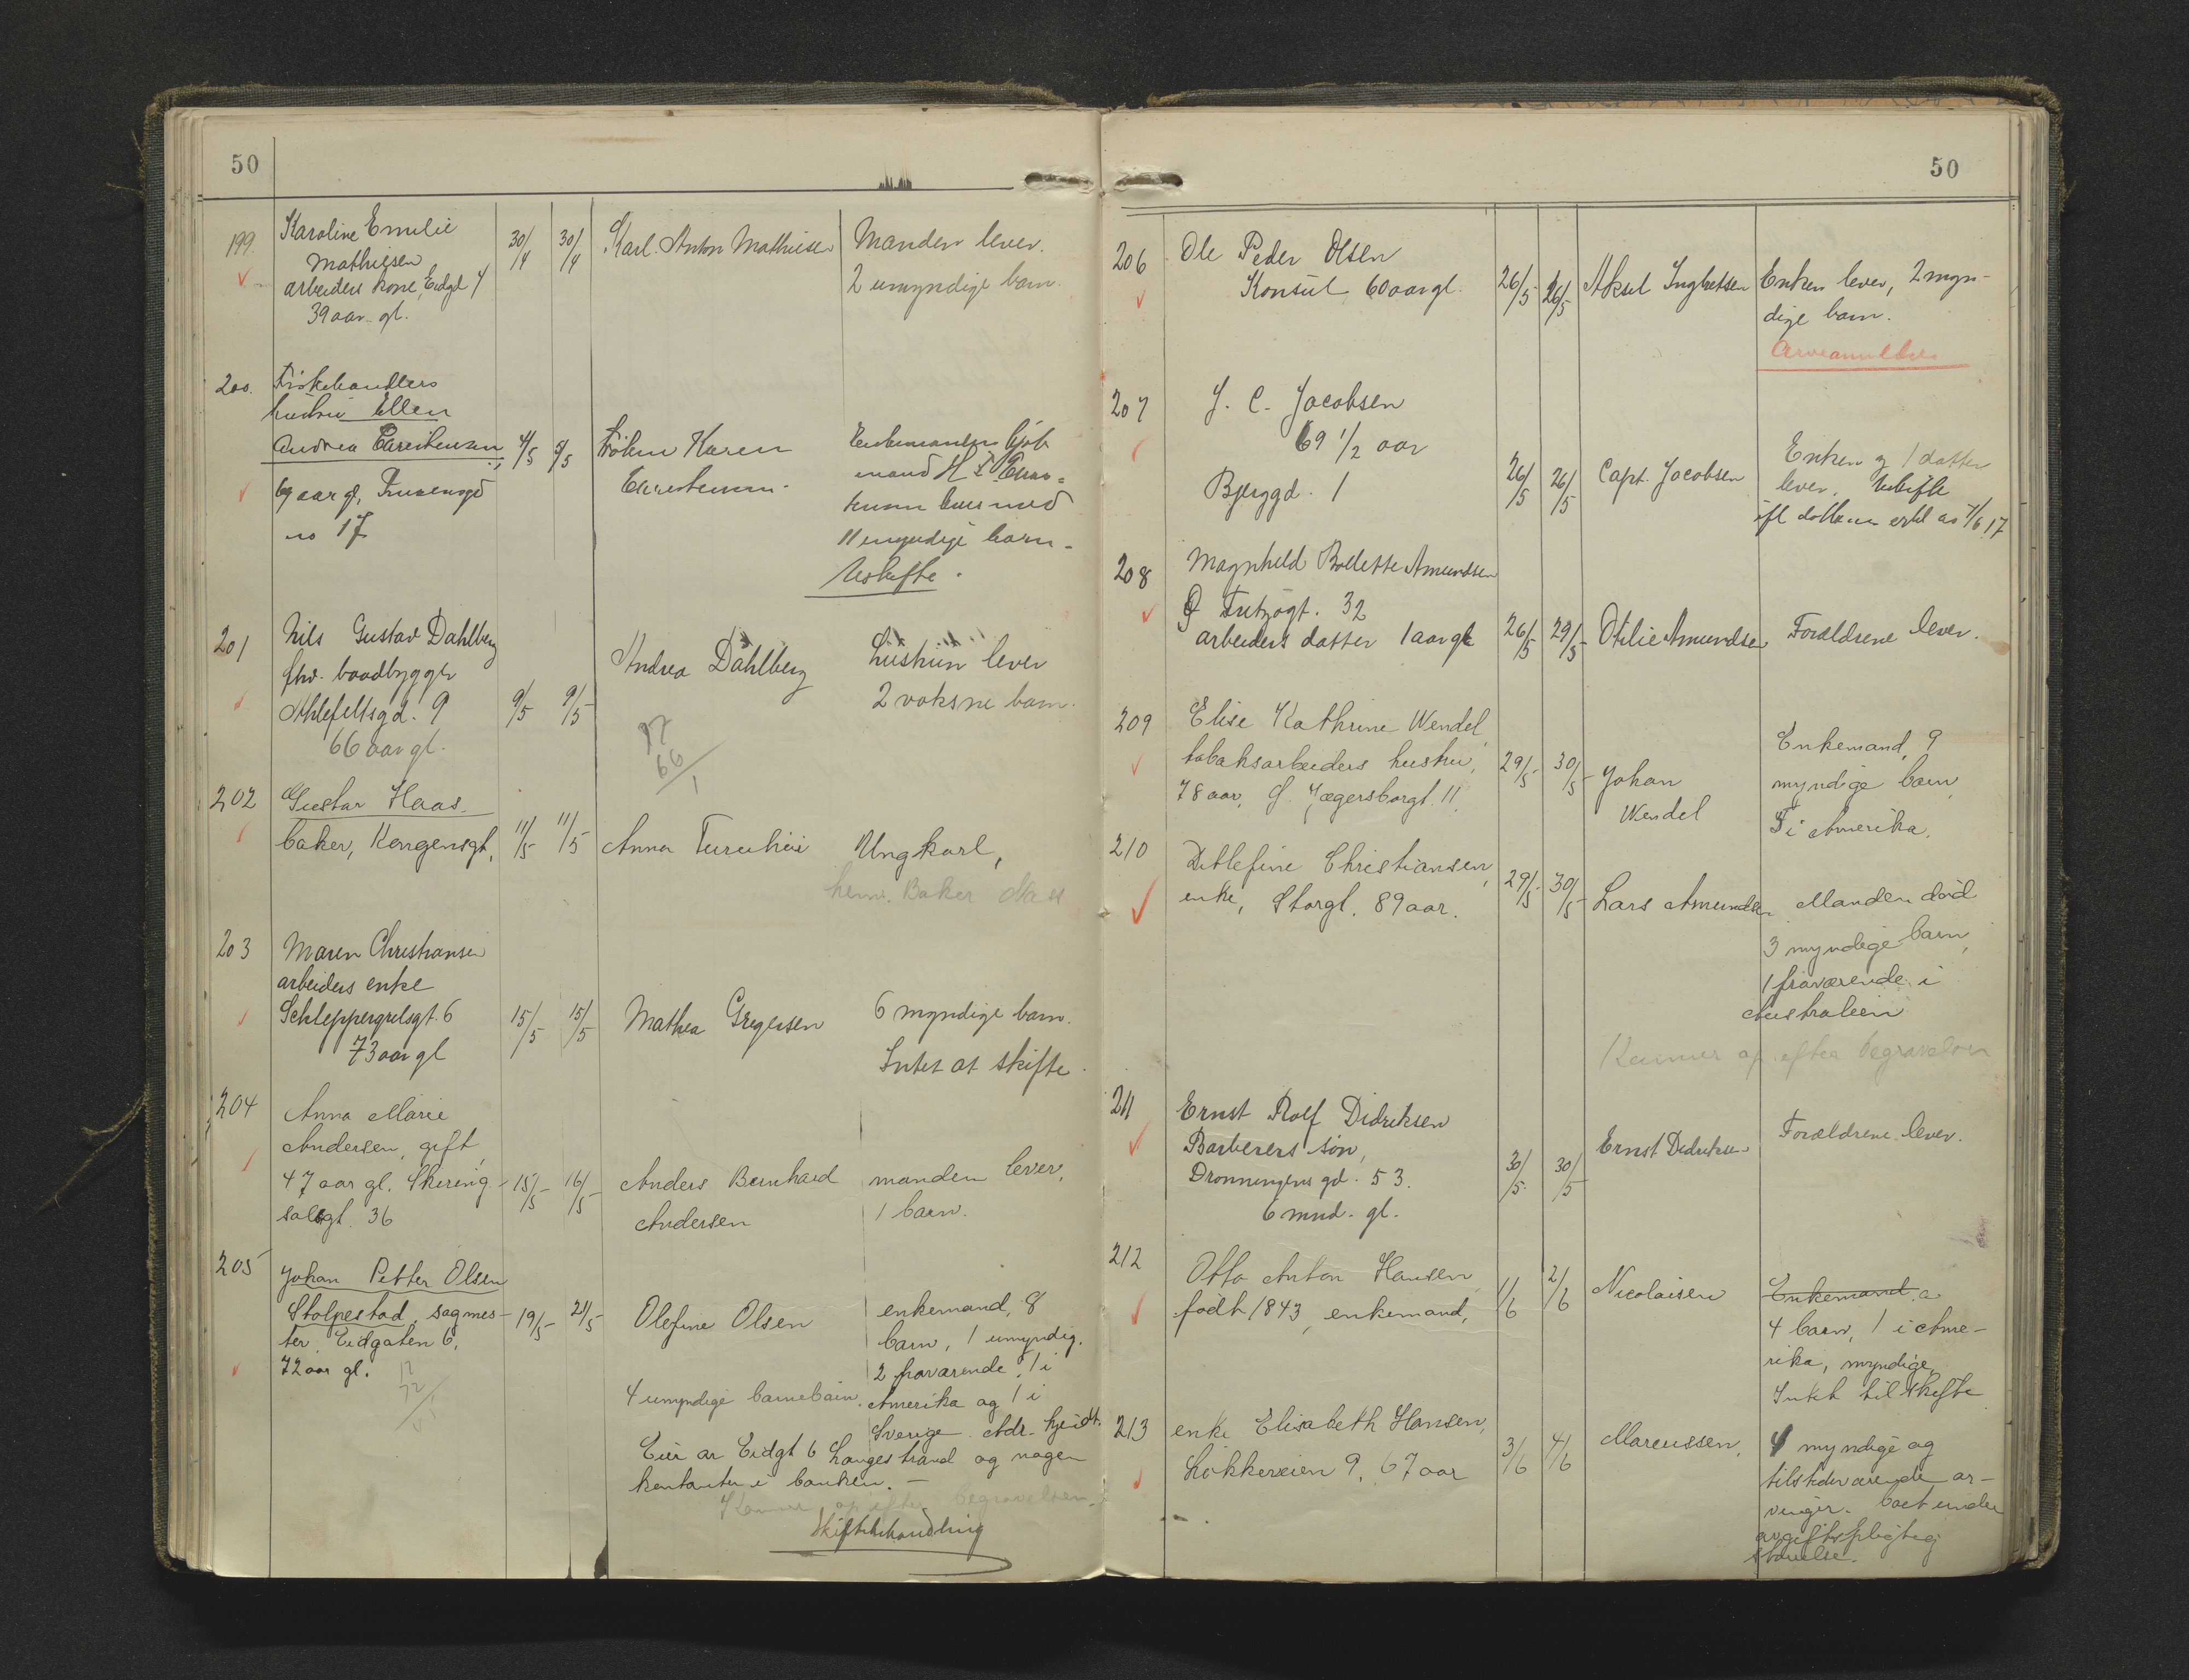 50
199. Karoline Emilie
Mathiesen
arbeiders kone, Eidgt 4
39 aar gl.
30/4 30/4
Karl. Anton Mathiesen
Manden lever.
2 umyndige barn.
200. Fiskehandlers
hustru Ellen
Andrea
69 aar gl,
no 17
4/5 5/5
Frøken Karen
Enkemanden
mand H
lever med
11 umyndige barn
Uskifte.
201 Nils Gustav Dahlberg
fhv. baadbygger
Ahlefeltsgd. 9
66 aar gl.
9/5 9/5
Andrea Dahlberg
Hustru lever
2 voksne barn.
17
66/1
202 Gustav Haas
baker, Kongensgt,
11/5 11/5
Anna
Ungkarl,
henv. Baker Haas
203 Maren Christiansen
arbeiders enke
Schleppegrelsgt. 6
73 aar gl
15/5 15/5
Mathea Gregersen
6 myndige barn.
Intet at skifte.
204 Anna Marie
Andersen, gift,
47 aar gl. Skiring-
salsgt. 36
15/5 16/5
Anders Bernhard
Andersen
manden lever,
1 barn.
205 Johan Petter Olsen
Stolpestad, sagmes-
ter, Eidgaten 6,
72 aar gl.
19/5 21/5
Olefine Olsen
enkemand, 8
barn, 1 umyndig.
2 fraværende, 1 i
Amerika og 1 i
Sverige. Adr. kjendt.
4 umyndige barnebarn.
Eier av Eidgt 6 Langestrand og nogen
kontanter i banken.
Kommer op efter begravelsen.
Skiftebehandling
50
206 Ole Peder Olsen
Konsul 60 aar gl.
26/5 26/5
Aksel Ingbretsen
Enken lever, 2 myn-
dige barn.
Arveanmeldelse
207 J. C. Jacobsen
69 1/2 aar
Bjerggd. 1
26/5 26/5
Capt. Jacobsen
Enken og 1 datter
lever. Uskifte
ifl datterens erkl av 7/6 17
208 Magnhild Bollette Amundsen
Fritzøgt. 32
arbeiders datter 1 aar gl
26/5 29/5
Otilie Amundsen
Forældrene lever.
209 Elise Kathrine Wendel,
tobaksarbeiders hustru,
78 aar, G. Jægersborgt. 11.
29/5 30/5
Johan
Wendel
Enkemand, 9
myndige barn,
5 i Amerika.
210 Ditlefine Christiansen,
enke, Storgt. 89 aar.
29/5 30/5
Lars Amundsen
Manden død
3 myndige barn,
1 fraværende i
Australien
Kommer op efter begravelsen
211 Ernst Rolf Didriksen
Barberers søn,
Dronningens gd. 53.
6 mnd. gl.
30/5 30/5
Ernst Didriksen
Forældrene lever.
212 Otto Anton Hansen,
født 1843, enkemand,
1/6 2/6
Nicolaisen
Enkemand.
4 barn, 1 i Ame-
rika, myndige,
Intet til skifte
213 enke Elisabeth Hansen,
Løkkeveien 9, 67 aar
3/6 4/6
Marcussen,
4 myndige og
tilstedeværende ar-
vinger. Boet under
avgiftspligtig
størrelse.